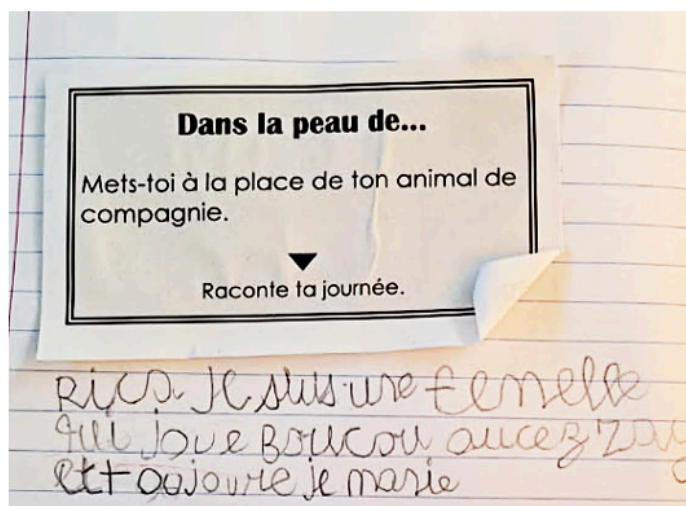 Dans la peau de...
Mets-toi à la place de ton animal de
compagnie.
Raconte ta journée.
je suis une femelle
qui joue Boucou
je marie